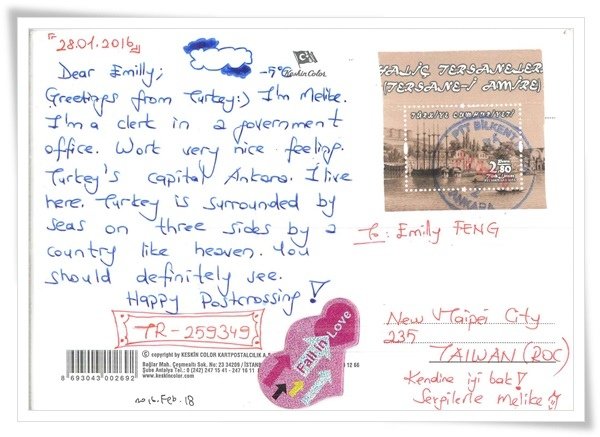 28.01.2016
-5°C
Keskin Color
Dear Emilly;
Greetings from Turkey:) I'm Melike.
I'm a clert in a government
office. Work very nice feeling.
Turkey's capital Ankara. I live
here. Turkey is surrounded by
seas on three sides by a
country like heaven. You
should definitely see.
Happy Postcrossing!
TR-259349
© copyright by KESKİN COLOR KARTPOSTALCILIK A.Ş.
Bağlar Mah. Çeşmealtı Sok. No: 23 34209 / İSTANBUL
Şube Antalya Tel.: 0 (242) 247 15 41 - 247 16 11
12 66
www.keskincolor.com
8 693043 002692
2016. Feb. 18
Fall in Love
HALİÇ TERSANELERİ
(TERSANE-İ AMİRE)
TÜRKİYE CUMHURİYETİ
2.80
PTT BİLKENT
ANKARA
To: Emilly FENG
New Taipei City
235
TAIWAN (ROC)
Kendine iyi bak!
Sevgilerle Melike :)